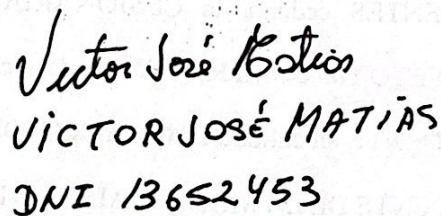 Victor José Matias
VICTOR JOSÉ MATÍAS
DNI 13652453